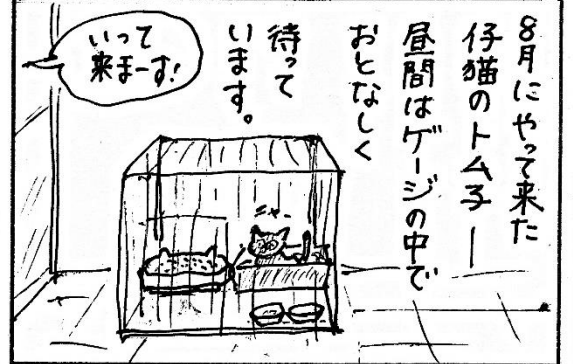 8月にやって来た
仔猫のトム子ー
昼間はゲージの中で
おとなしく
待って
います。
いって
来まーす!
ニャー